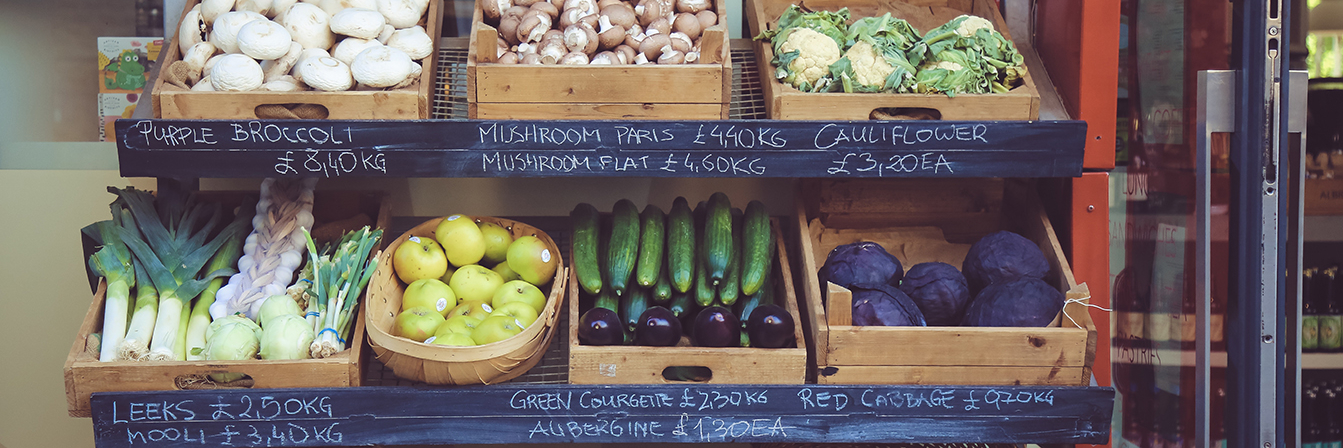 PURPLE BROCCOLI
£8,40KG
MUSHROOM PARIS £4,40KG
MUSHROOM FLAT £4,60KG
CAULIFLOWER
£3,20EA
LEEKS £2,50KG
MOOLI £3,40KG
GREEN COURGETTE £2,30KG
AUBERGINE £1,30EA
RED CABBAGE